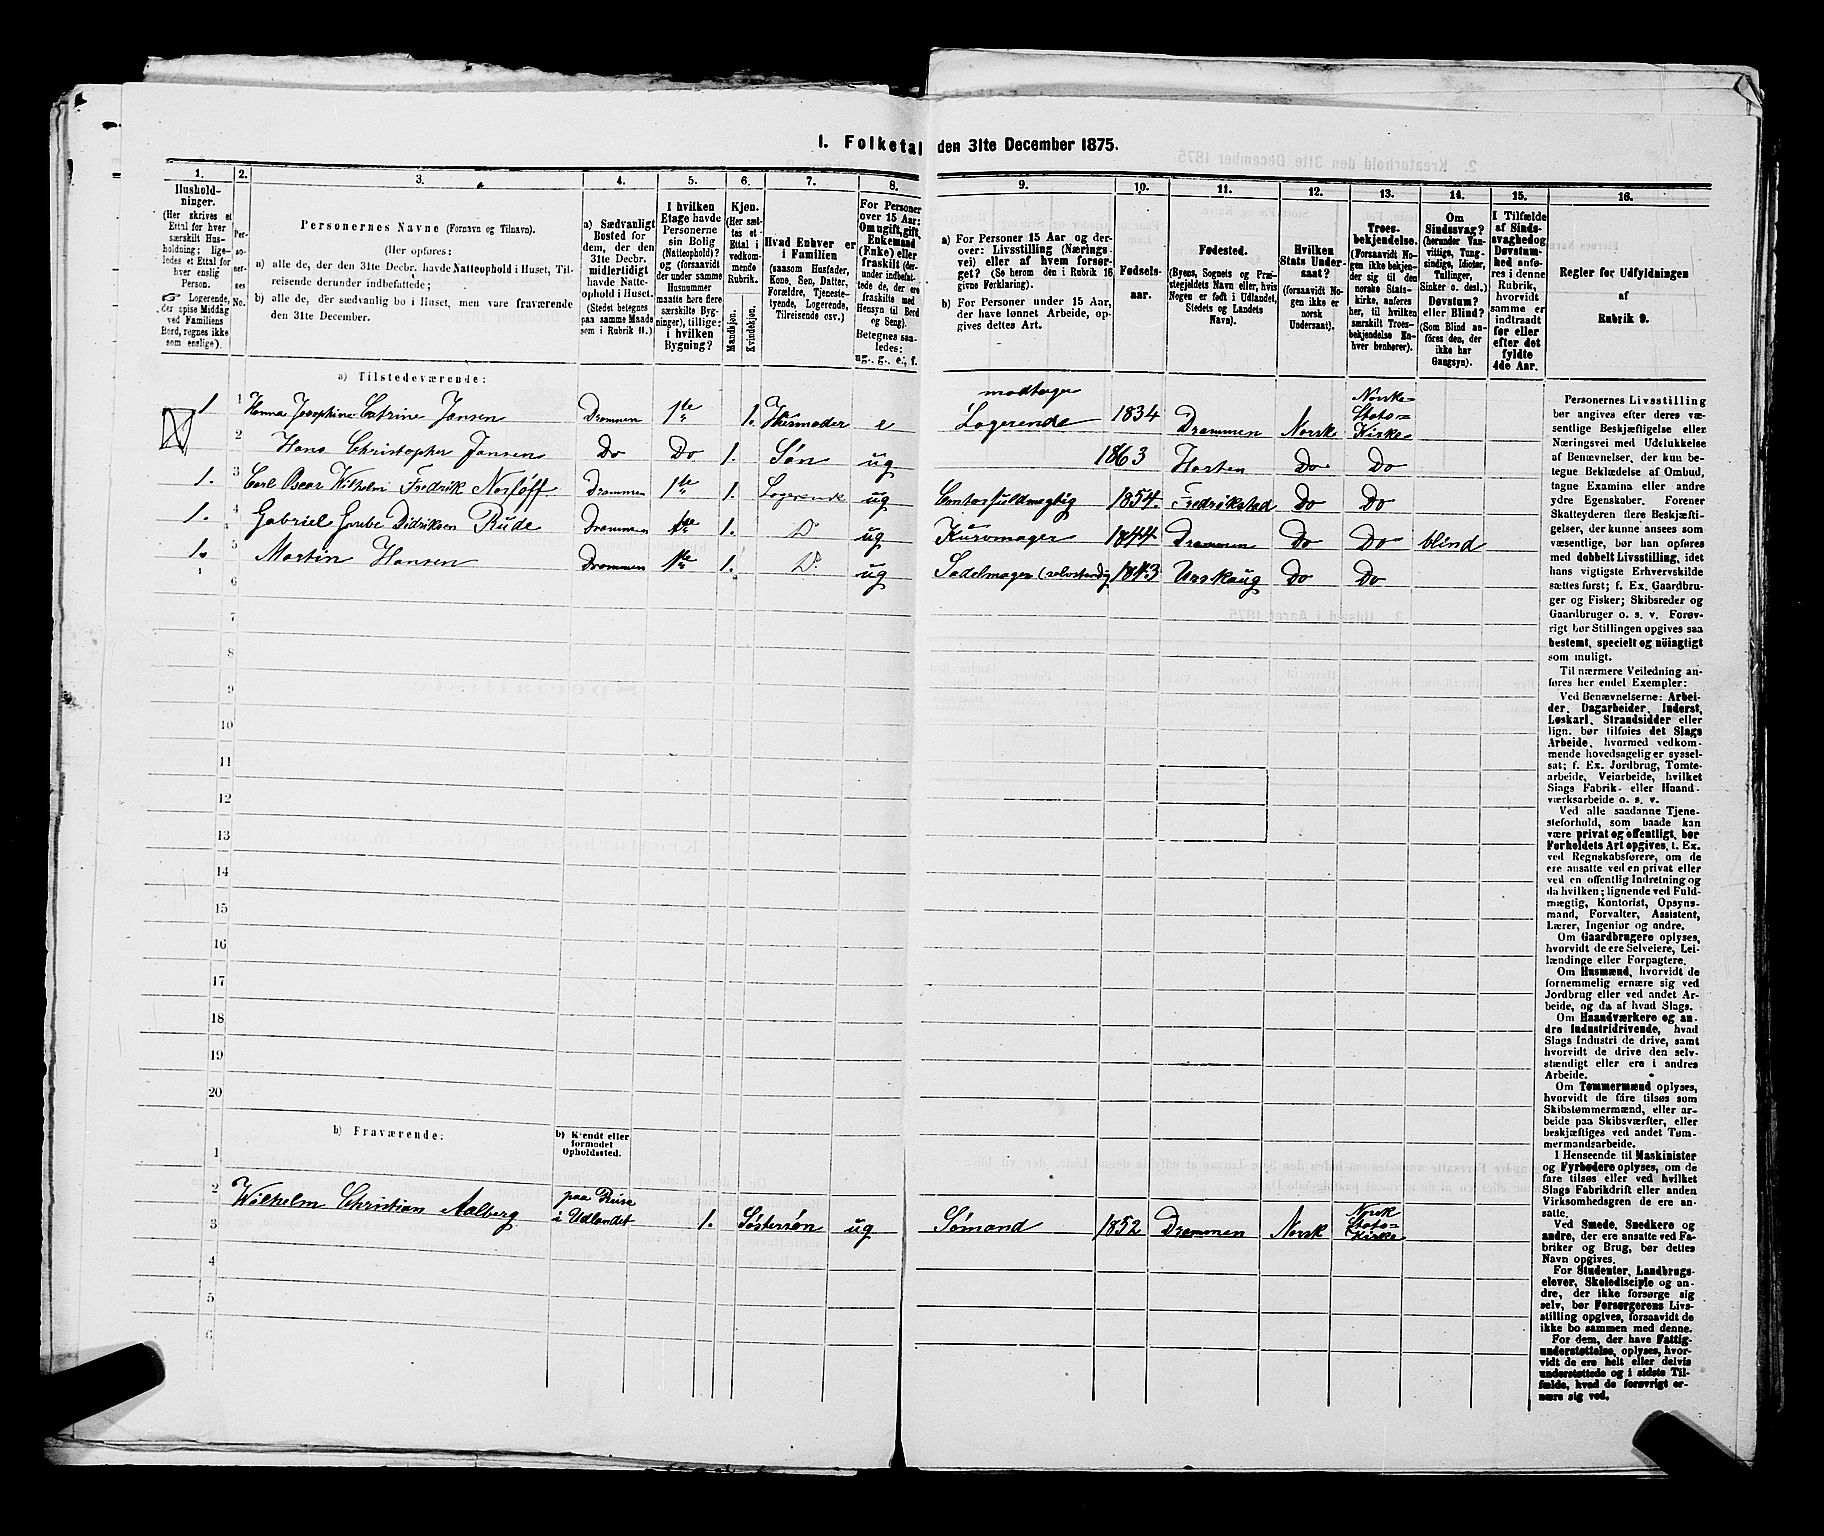 1. Folketal den 31te December 1875.
1.
2.
3.
4.
5.
6.
7.
8.
9.
10.
11.
12.
13.
14.
15.
16.
Hushold-
ninger.
(Her skrives et
Ettal for hver
særskilt Hus-
holdning; lige-
ledes et Ettal for
hver enslig
Person.
☞ Logerende,
der spise Middag
ved Familiens
Bord, regnes ikke
som enslige).
Per-
so-
ner-
nes
No.
Personernes Navne (Fornavn og Tilnavn).
(Her opføres:
a) alle de, der den 31te Decbr. havde Natteophold i Huset, Til-
reisende derunder indbefattede;
b) alle de, der sædvanlig bo i Huset, men vare fraværende
den 31te December.
a) Sædvanligt
Bosted for
dem, der den
31te Decbr.
midlertidigt
havde Natte-
ophold i Huset.
(Stedet betegnes
paa samme Maade
som i Rubrik 11.)
I hvilken
Etage havde
Personerne
sin Bolig
(Natteophold)?
og (forsaavidt
der under samme
Husnummer
maatte høre flere
særskilte Byg-
ninger), tillige:
i hvilken
Bygning?
Kjøn.
(Her sæt-
tes et
Ettal i
vedkom-
mende
Rubrik.
Mandkjøn.
Kvindekjøn.
Hvad Enhver er
i Familien
(saasom Husfader,
Kone, Søn, Datter,
Forældre, Tjeneste-
tyende, Logerende,
Tilreisende osv.)
For Personer
over 15 Aar:
Om ugift, gift,
Enkemand
(Enke) eller
fraskilt (der-
under indbefat-
tede de, der ere
fraskilte med
Hensyn til Bord
og Seng).
Betegnes saa-
ledes:
ug., g., e., f.
a) For Personer 15 Aar og der-
over: Livsstilling (Nærings-
vei) eller af hvem forsør-
get? (Se herom den i Rubrik 16
givne Forklaring).
b) For Personer under 15 Aar,
der have lønnet Arbeide, op-
gives dettes Art.
Fødsels-
aar.
Fødested.
(Byens, Sognets og Præ-
stegjeldets Navn eller, hvis
Nogen er født i Udlandet,
Stedets og Landets
Navn).
Hvilken
Stats Under-
saat?
(forsaavidt No-
gen ikke er
norsk
Undersaat).
Troes-
bekjendelse.
(Forsaavidt No-
gen ikke bekjen-
der sig til den
norske Stats-
kirke, anføres
her, til hvilken
særskilt Troes-
bekjendelse En-
hver benhører).
Om
Sindssvag?
(herunder Van-
vittige, Tung-
sindige, Idioter,
Tullinger,
Sinker o. desl.)
Døvstum?
eller Blind?
(Som Blind an-
føres den, der
ikke har
Gangsyn).
I Tilfælde
af Sinds-
svaghed og
Døvstum-
hed anfø-
res i denne
Rubrik,
hvorvidt
samme er
indtraadt
før eller
efter det
fyldte
4de Aar.
Regler for Udfyldningen
af
Rubrik 9.
a) Tilstedeværende:
1 1 Hanna Josephine Catrine Jansen Drammen 1te 1. Huusmoder e modtager Logerende 1834 Drammen Norsk Norske Stats=Kirke
2 Hans Christopher Jansen Do Do 1. Søn ug 1863 Horten Do Do
1. 3 Carl Oscar Wilhelm Fredrik Norløff Drammen 1te 1. Logerende ug Contorfuldmægtig 1854. Fredrikstad Do Do
1. 4 Gabriel Grube Didriksen Rude Drammen 1te 1. D. ug Kurvmager 1844 Drammen Do Do blind
1. 5 Martin Hansen Drammen 1te 1. D. ug Sadelmager (selvstændig 1843 Urskaug Do Do
6
7
8
9
10
11
12
13
14
15
16
17
18
19
20
b) Fraværende:
b) Kjendt eller
formodet
Opholdssted.
1
2
Wilhelm Christian Aalberg paa Reise i Udlandet 1. Søstersøn ug Sømand 1852 Drammen Norsk Norsk Stats=Kirke
3
4
5
6
Personernes Livsstilling
bør angives efter deres væ-
sentlige Beskjæftigelse eller
Næringsvei med Udelukkelse
af Benævnelser, der kun be-
tegne Beklædelse af Ombud,
tagne Examina eller andre
ydre Egenskaber. Forener
Skatteyderen flere Beskjæfti-
gelser, der kunne ansees som
væsentlige, bør han opføres
med dobbelt Livsstilling, idet
hans vigtigste Erhvervskilde
sættes først; f. Ex. Gaardbru-
ger og Fisker; Skibsreder og
Gaardbruger o. s. v. Forøv-
rigt bør Stillingen opgives saa
bestemt, specielt og nöiagtigt
som muligt.
Til nærmere Veiledning an-
føres her endel Exempler:
Ved Benævnelserne: Arbei-
der, Dagarbeider, Inderst,
Løskarl, Strandsidder eller
lign. bør tilføies det Slags
Arbeide, hvormed vedkom-
mende hovedsagelig er syssel-
sat; f. Ex. Jordbrug, Tomte-
arbeide, Veiarbeide, hvilket
Slags Fabrik- eller Haand-
værksarbeide o. s. v.
Ved alle saadanne Tjene-
steforhold, som baade kan
være privat og offentligt, bør
Forholdets Art opgives, t. Ex.
ved Regnskabsførere, om de
ere ansatte ved en privat eller
ved en offentlig Indretning og
da hvilken; lignende ved Fuld-
mægtig, Kontorist, Opsyns-
mand, Forvalter, Assistent,
Lærer, Ingeniør og andre.
Om Gaardbrugere oplyses,
hvorvidt de ere Selveiere, Lei-
lændinge eller Forpagtere.
Om Husmænd, hvorvidt de
fornemmelig ernære sig ved
Jordbrug eller ved andet Ar-
beide, og da af hvad Slags.
Om Haandværkere og an-
dre Industridrivende, hvad
Slags Industri de drive, samt
hvorvidt de drive den selv-
stændigt eller ere i andres
Arbeide.
Om Tømmermænd oplyses,
hvorvidt de fare tilsøs som
Skibstømmermænd, eller ar-
beide paa Skibsværfter, eller
beskjæftiges ved andet Tøm-
mermandsarbeide.
I Henseende til Maskinister
og Fyrbødere oplyses, om de
fare tilsøs eller ved hvilket
Slags Fabrikdrift eller anden
Virksomhedsgren de ere an-
satte.
Ved Smede, Snedkere og
andre, der ere ansatte ved Fa-
briker og Brug, bør dettes
Navn opgives.
For Studenter, Landbrugs-
elever, Skoledisciple og an-
dre, der ikke forsørge sig
selv, bør Forsørgerens Livs-
stilling opgives, forsaavidt de
ikke bo sammen med denne.
For dem, der have Fattig-
understøttelse, oplyses, hvor-
vidt de ere helt eller delvis
understøttede og i sidste Til-
fælde, hvad de forøvrigt er-
nære sig ved.